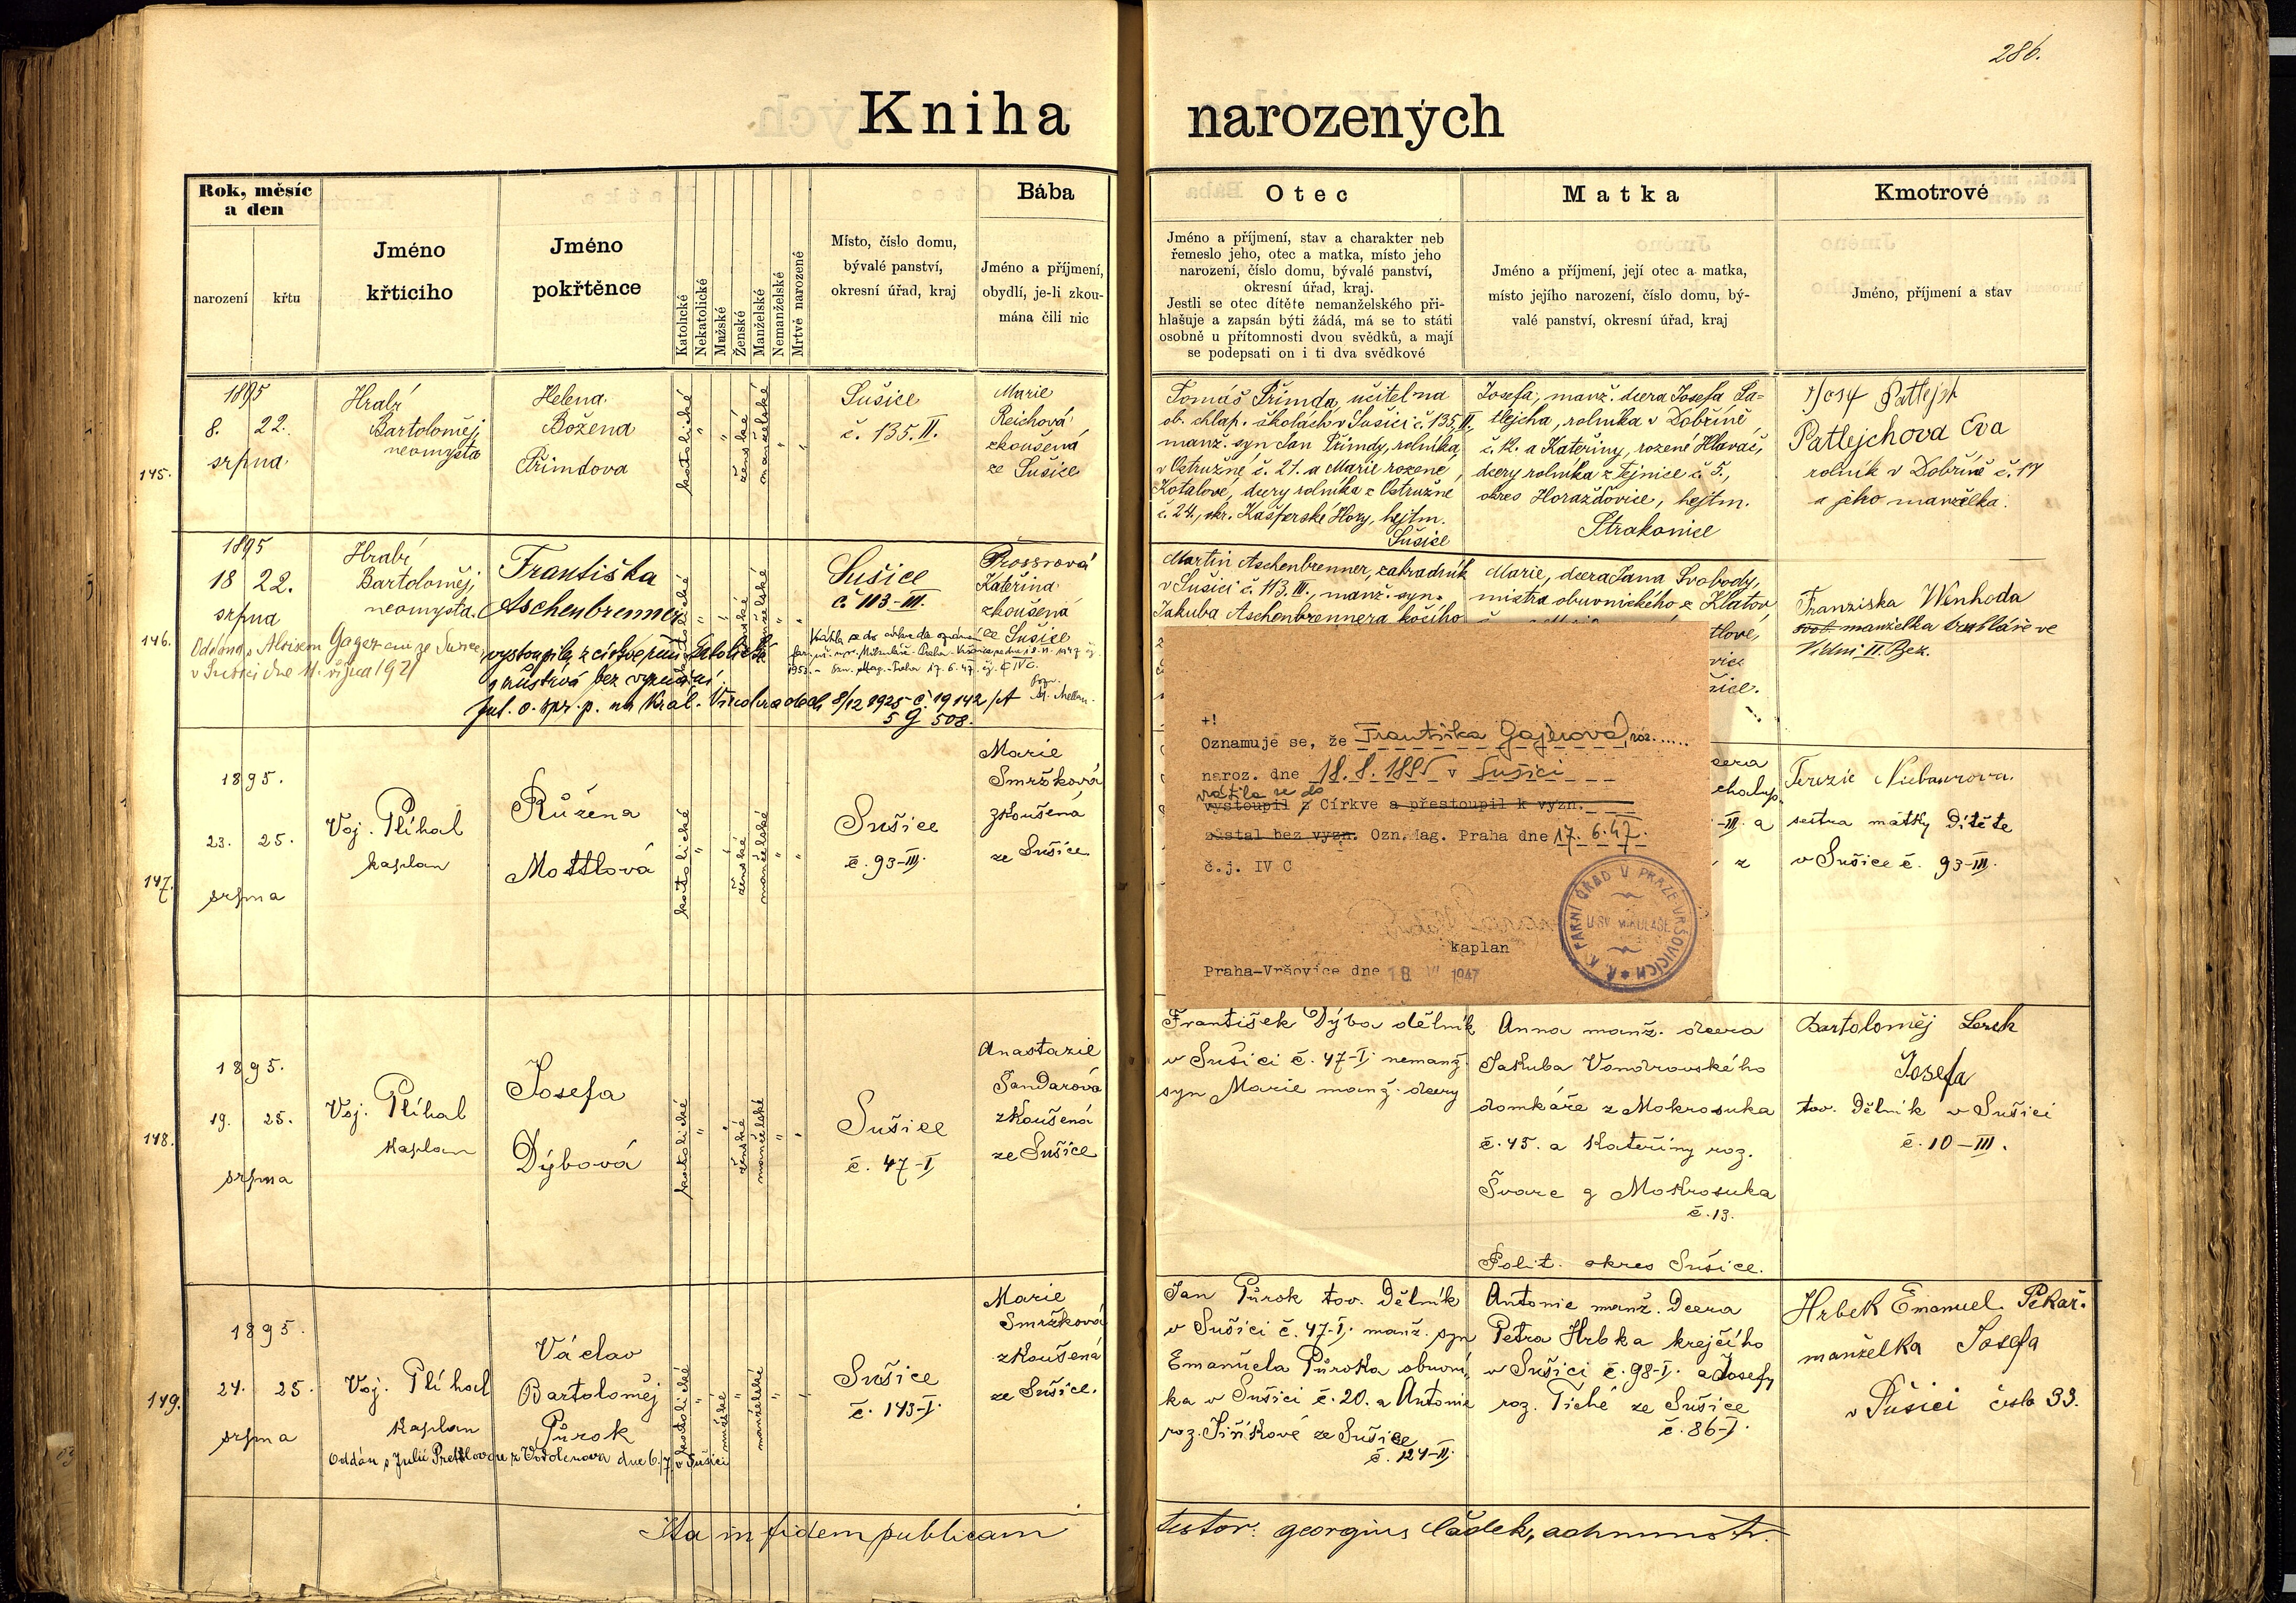 286.
Kniha narozených
Rok, měsíc
a den
narození
křtu
Jméno
křticího
Jméno
pokřtěnce
Katolické
Nekatolické
Mužské
Ženské
Manželské
Nemanželské
Mrtvě narozené
Místo, číslo domu,
bývalé panství,
okresní úřad, kraj
Bába
Jméno a příjmení,
obydlí, je-li zkou-
mána čili nic
Otec
Jméno a příjmení, stav a charakter neb
řemeslo jeho, otec a matka, místo jeho
narození, číslo domu, bývalé panství,
okresní úřad, kraj.
Jestli se otec dítěte nemanželského při-
hlašuje a zapsán býti žádá, má se to státi
osobně u přítomnosti dvou svědků, a mají
se podepsati on i ti dva svědkové
Matka
Jméno a příjmení, její otec a matka,
místo jejího narození, číslo domu, bý-
valé panství, okresní úřad, kraj
Kmotrové
Jméno, příjmení a stav
145.
1895
8. 22.
srpna
Hrabě
Bartoloměj
neomysta
Helena
Božena
Přimdova
katolické
ženské
manželské
Sušice
č. 135. II.
Marie
Reichová
zkoušená
ze Sušice
Tomáš Přimda, učitel na
ob. chlap. školách v Sušici č. 135, II.,
manž. syn Jan Přimdy, rolníka
v Ostružné, č. 21. a Marie rozené
Kotalové, dcery rolníka z Ostružné
č. 24., okr. Kašperské Hory, hejtm.
Sušice
Josefa, manž. dcera Josefa Pa-
tlejcha, rolníka v Dobříně,
č. 12. a Kateřiny, rozené Hlavač,
dcery rolníka z Tejnice č. 5.,
okres Horažďovice, hejtm.
Strakonice
Josef Patlejch
Patlejchova Eva
rolník v Dobříně č. 17
a jeho manželka.
146.
1895
18 22.
srpna
Hrabě
Bartoloměj,
neomysta.
Františka
Aschenbrenner
katolické
ženské
manželské
Sušice
č. 113-III.
Prossrová
Kateřina
zkoušená
ze Sušice
Oddána s Aloisem Gagerem ze Sušice,
v Sušici dne 11. října 1921
vystoupila z církve řím. katolické
a zůstává bez vyznání
o. spr. p. na Král. Vinohradech 8/12 1925 č. 19142/A
5 G 508.
Martin Aschenbrenner, zahradník
v Sušici č. 113. III., manž. syn
Jakuba Aschenbrennera kočího
Marie, dcera Jana Svobody,
mistra obuvnického z Klatov
tlové,
Franziska Wenhoda
manželka truhláře ve
Vídni II. Bez.
+!
Oznamuje se, že Františka Gajerová, roz......
naroz. dne 18.8.1895 v Sušici
vrátila se do
vystoupil z Církve a přestoupil k vyzn.
zůstal bez vyzn. Ozn. Mag. Praha dne 17.6.47.
č.j. IV C
kaplan
Praha-Vršovice dne 18 VI 1947
Ř. K. FARNÍ ÚŘAD V PRAZE VRŠOVICÍCH
U SV. MIKULÁŠE
147.
1895.
23. 25.
srpna
Voj. Plíhal
kaplan
Růžena
Mottlová
katolické
ženské
manželské
Sušice
č. 93-III.
Marie
Smržková
zkoušená
ze Sušice
dcera
chalup.
-III. a
z
Terezie Niebaurova.
sestra matky dítěte
v Sušice č. 93-III.
148.
1895.
19. 25.
srpna
Voj. Plíhal
kaplan
Josefa
Dýbová
katolické
ženské
manželské
Sušice
č. 47-I
Anastazie
Šandarová
zkoušená
ze Sušice
František Dýba dělník
v Sušici č. 47-I. nemanž.
syn Marie manž. dcery
Anna manž. dcera
Jakuba Vondrovského
domkáře z Mokrosuka
č. 45. a Kateřiny roz.
Švarc z Mokrosuka
č. 13.
Polit. okres Sušice.
Bartoloměj Lerch
Josefa
tov. dělník v Sušici
č. 10-III.
149.
1895.
24. 25.
srpna
Voj. Plíhal
kaplan
Václav
Bartoloměj
Půrok
katolické
mužské
manželské
Sušice
č. 143-I.
Marie
Smržková
zkoušená
ze Sušice.
Oddán s Julií v Sušici
Jan Půrok tov. dělník
v Sušici č. 47-I. manž. syn
Emanuela Půroka obuvní-
ka v Sušici č. 20. a Antonie
roz. Jiříkové ze Sušice
č. 124-II.
Antonie manž. dcera
Petra Hrbka krejčího
v Sušici č. 98-I. a Josefy
roz. Tiché ze Sušice
č. 86-I.
Hrbek Emanuel Pekař.
manželka Josefa
v Sušici číslo 33.
Ita in fidem publicam testor: georgius Čádek, administr.